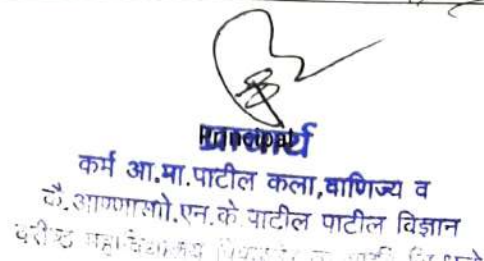 प्राचार्य
Principal
कर्म आ.मा.पाटील कला,वाणिज्य व
कै.आण्णासो.एन.के.पाटील पाटील विज्ञान
वरीष्ठ महाविद्यालय